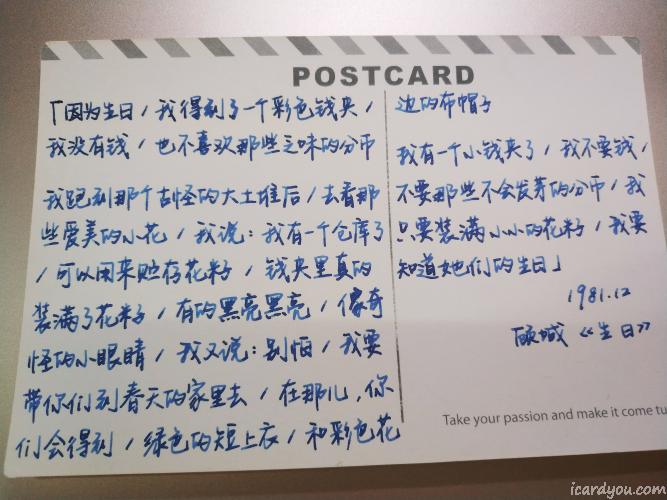 POSTCARD
「因为生日/我得到了一个彩色钱夹/
我没有钱/也不喜欢那些乏味的分币
我跑到那个古怪的大土堆后/去看那
些爱美的小花/我说:我有一个仓库了
/可以用来贮存花籽/钱夹里真的
装满了花籽/有的黑亮黑亮/像奇
怪的小眼睛/我又说:别怕/我要
带你们到春天的家里去/在那儿,你
们会得到/绿色的短上衣/和彩色花
边的布帽子
我有一个小钱夹了/我不要钱/
不要那些不会发芽的分币/我
只要装满小小的花籽/我要
知道她们的生日」
1981.12
顾城《生日》
Take your passion and make it come tu
icardyou.com